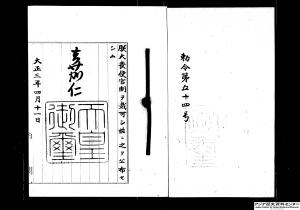 勅令第五十四号
朕大喪使官制ヲ裁可シ茲ニ之ヲ公布セ
シム
嘉仁
天皇
御璽
大正三年四月十一日
アジア歴史資料センター